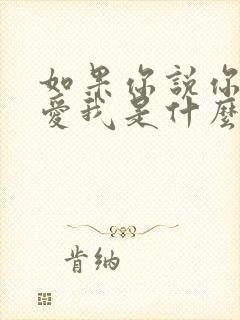 如果你說你
愛我是什麼
肯納